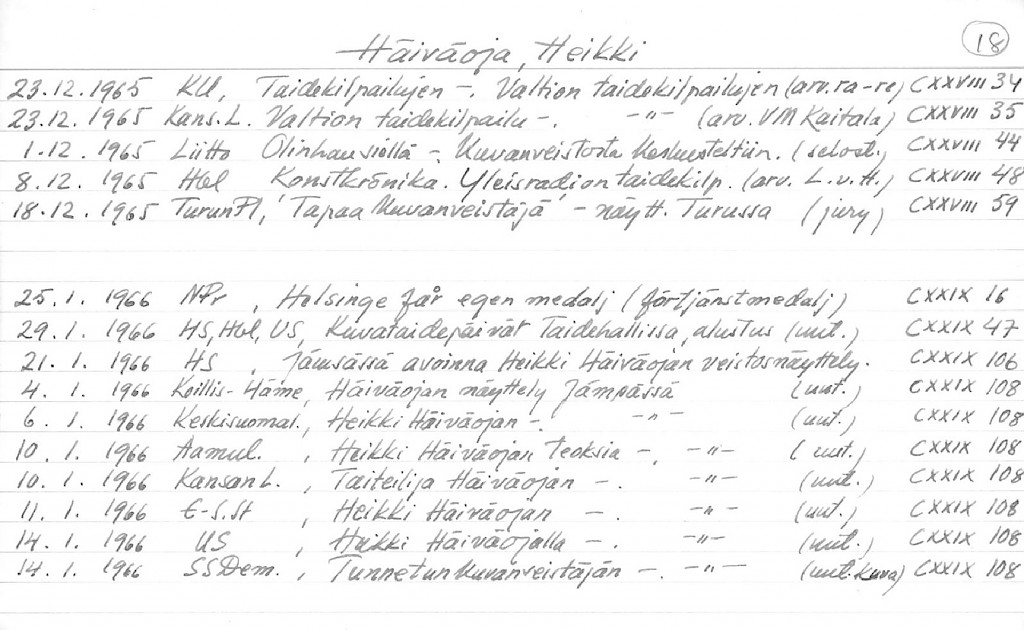 Häiväoja, Heikki
18
23.12.1965 KU, Taidekilpailujen -. Valtion taidekilpailujen (arv. ra-re) CXXVIII 34
23.12.1965 Kans.L. Valtion taidekilpailu -. -"- (arv. VM Kaitala) CXXVIII 35
1.12.1965 Liitto Olinhan siellä -. Kuvanveistosta keskusteltiin. (selost.) CXXVIII 44
8.12.1965 Hbl Konstkrönika. Yleisradion taidekilp. (arv. L.v.H.) CXXVIII 48
18.12.1965 Turun Pl, "Tapaa Kuvanveistäjä" -näytt. Turussa (jury) CXXVIII 59
25.1.1966 NPr, Helsinge får egen medalj (förtjänstmedalj) CXXIX 16
29.1.1966 HS, Hbl, US, Kuvataidepäivät Taidehallissa, alustus (uut.) CXXIX 47
21.1.1966 HS, Jämsässä avoinna Heikki Häiväojan veistosnäyttely. CXXIX 106
4.1.1966 Koillis-Häme, Häiväojan näyttely Jämsässä (uut.) CXXIX 108
6.1.1966 Keskisuomal., Heikki Häiväojan -. -"- (uut.) CXXIX 108
10.1.1966 Aamul., Heikki Häiväojan teoksia -. -"- (uut.) CXXIX 108
10.1.1966 Kansan L., Taiteilija Häiväojan -. -"- (uut.) CXXIX 108
11.1.1966 E-S.St, Heikki Häiväojan -. -"- (uut.) CXXIX 108
14.1.1966 US, Heikki Häiväojalla -. -"- (uut.) CXXIX 108
14.1.1966 SSDem., Tunnetun Kuvanveistäjän -. -"- (uut. kuva) CXXIX 108